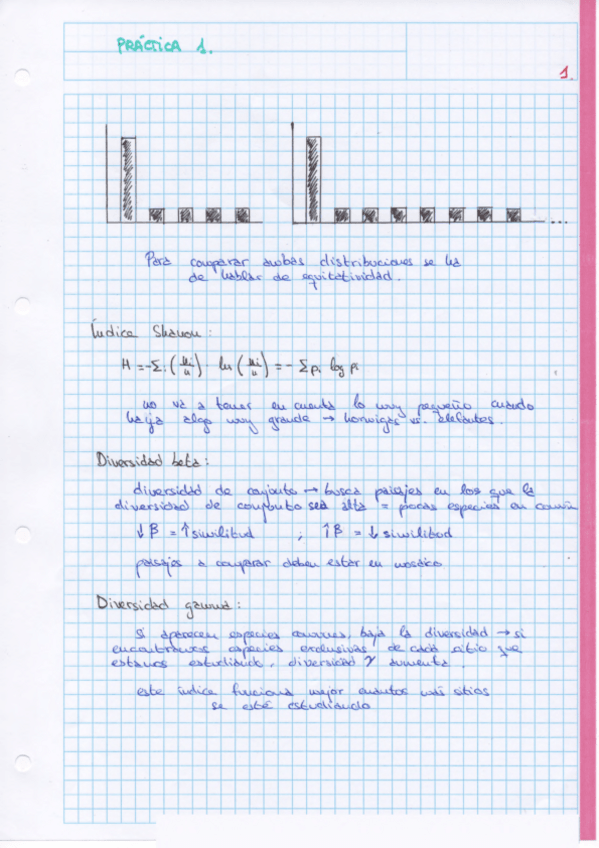 PRÁCTICA 1.
1.
...
Para comparar ambas distribuciones se ha
de hablar de equitatividad.
Índice Shanon:
H = -Σi (ni/n) ln (ni/n) = - Σ pi log pi
no va a tener en cuenta lo muy pequeño cuando
haya algo muy grande → hormigas vs. elefantes.
Diversidad beta:
diversidad de conjunto → busca paisajes en los que la
diversidad de conjunto sea alta = pocas especies en común
↓ β = ↑ similitud ; ↑ β = ↓ similitud
paisajes a comparar deben estar en mosaico
Diversidad gamma:
Si aparecen especies comunes, baja la diversidad → si
encontramos especies exclusivas de cada sitio que
estamos estudiando, diversidad γ aumenta.
este índice funciona mejor cuantos más sitios
se esté estudiando